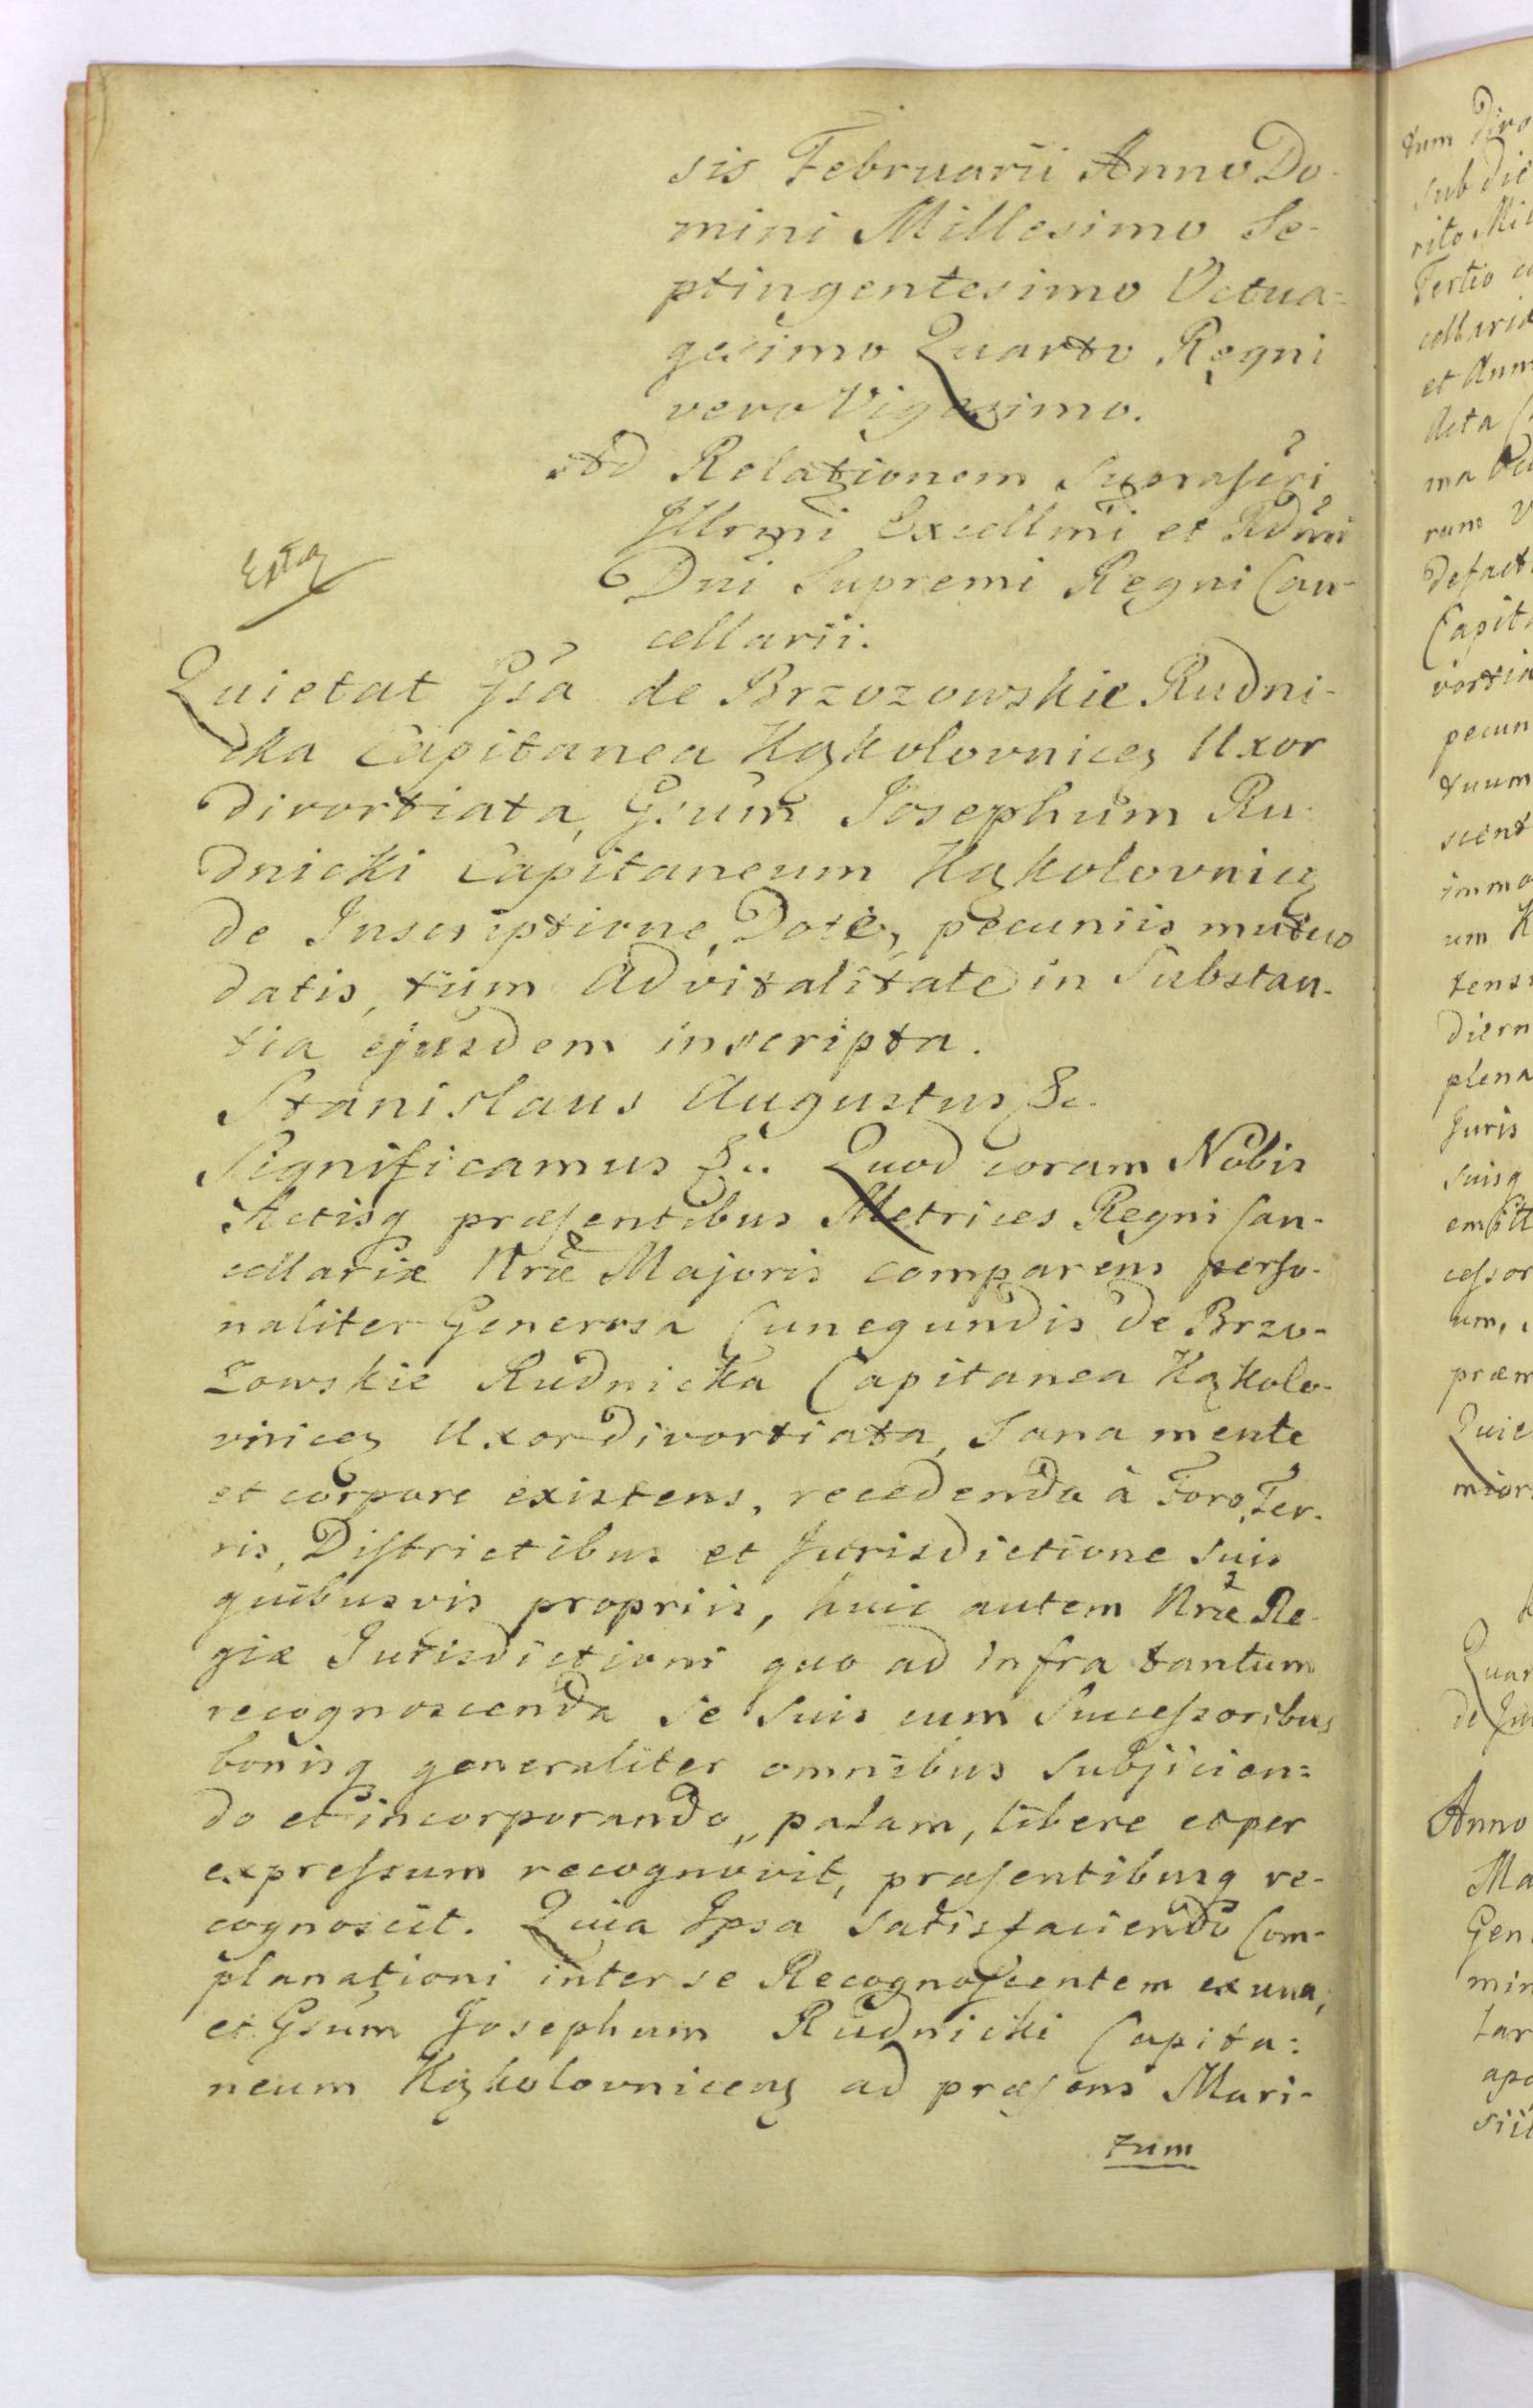 sis Februarii Anno Do-
mini Millesimo Se-
ptingentesimo Octua=
gesimo Quarto Regni
vero Vigesimo.
Ad Relationem Suprascri
Illrmi Excellmi et Rdmi
Dni Supremi Regni Can-
cellarii.
Quietat Gsa de Brzozowskie Rudni-
cka Capitanea Kąkolovnicen Uxor
divortiata, Gsum Josephum Ru-
dnicki Capitaneum Kąkolovnicen
de Inscriptione, Dote, pecuniis mutuo
datis, tum Advitalitate in Substan-
tia ejusdem inscripta.
Stanislaus Augustus &c.
Significamus &c. Quod coram Nobis
Actisq præsentibus Metrices Regni Can-
cellariæ Nræ Majoris comparens perso-
naliter Generosa Cunegundis de Brzo-
zowskie Rudnicka Capitanea Kąkolo-
vnicen Uxor divortiata, Sana mente
et corpore existens, recedendo à Foro, Ter-
ris, Districtibus et Jurisdictione suis
quibusvis propriis, huic autem Nræ Re-
giæ Jurisdictioni quo ad infra tantum
recognoscenda se Suis cum Successoribus
bonisq generaliter omnibus Subjicien=
do et incorporando, palam, libere et per
expressum recognovit, præsentibusq re-
cognoscit. Quia Ipsa Satisfaciendo Com-
planationi inter se Recognoscentem ex una,
et Gsum Josephum Rudnicki Capita=
neum Kąkolovnicen ad præsens Mari-
tum
tum Divo
sub die
rito Mil
Tertio
et Ann
Acta
rum
Defact
Capit
pecun
imma
um K
tens
diern
plena
Juris
suisq
cessor
um,
præm
Quie
Quar
Anno
Ma
Gen
min
tar